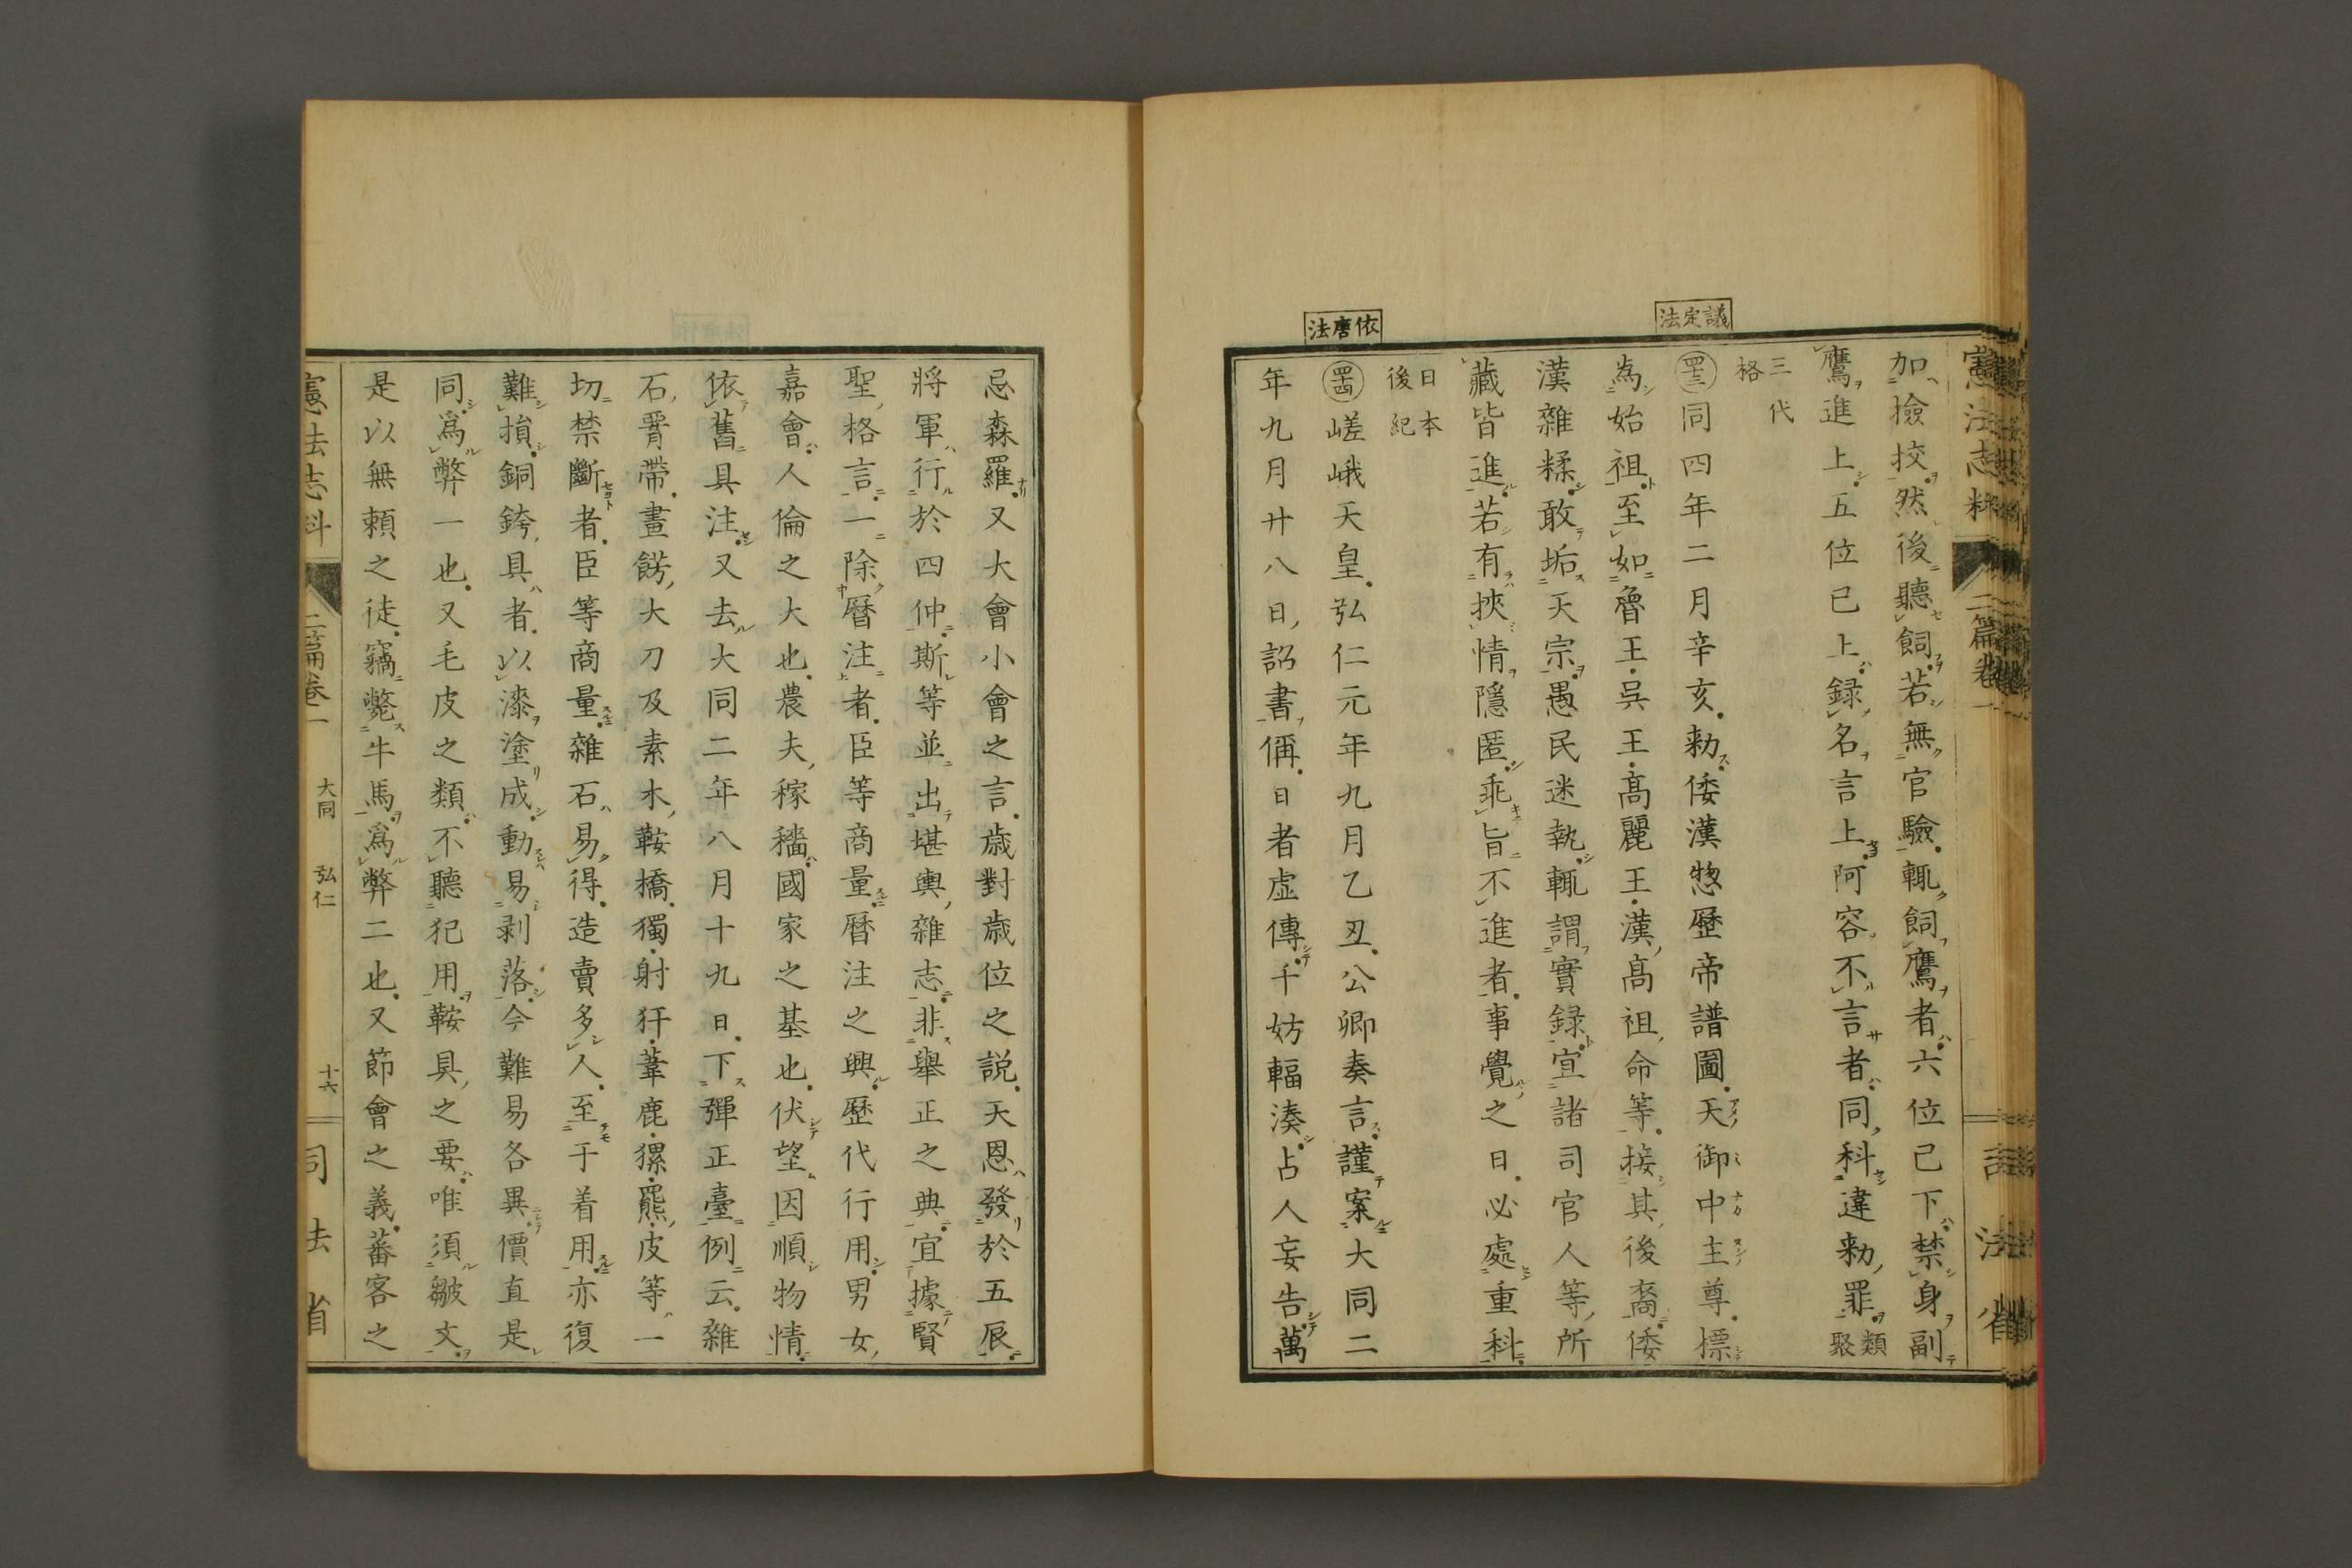 憲法志料 二篇卷一 司法省
加撿挍然後聽飼若無官驗輙飼鷹者六位已下禁身副
鷹進上五位已上録名言上阿容不言者同科違勅罪類聚
三代格
議定法
四三同四年二月辛亥勅倭漢惣歷帝譜圖天御中主尊標
為始祖至如魯王吳王髙麗王漢髙祖命等接其後裔倭
漢雜糅敢垢天宗愚民迷執輙謂實録宜諸司官人等所
藏皆進若有挾情隱匿乖旨不進者事覺之日必處重科
日本後紀
依唐法
四四嵯峨天皇弘仁元年九月乙丑公卿奏言謹案大同二
年九月廿八日詔書偁日者虛傳千妨輻湊占人妄告萬
忌森羅又大會小會之言歲對歲位之説天恩發於五辰
將軍行於四仲斯等並出堪輿雜志非舉正之典宜據賢
聖格言一除曆注者臣等商量曆注之興歷代行用男女
嘉會人倫之大也農夫稼穡國家之基也伏望因順物情
依舊具注又去大同二年八月十九日下彈正臺例云雜
石𦝫帶畫餝大刀及素木鞍橋獨射犴葦鹿猱羆皮等一
切禁斷者臣等商量雜石易得造賣多人至于着用亦復
難損銅銙具者以漆塗成動易剥落今難易各異價直是
同爲弊一也又毛皮之類不聽犯用鞍具之要唯須皺文
是以無頼之徒竊斃牛馬爲弊二也又節會之義蕃客之
憲法志料 二篇卷一 大同 弘仁 十六 司法省